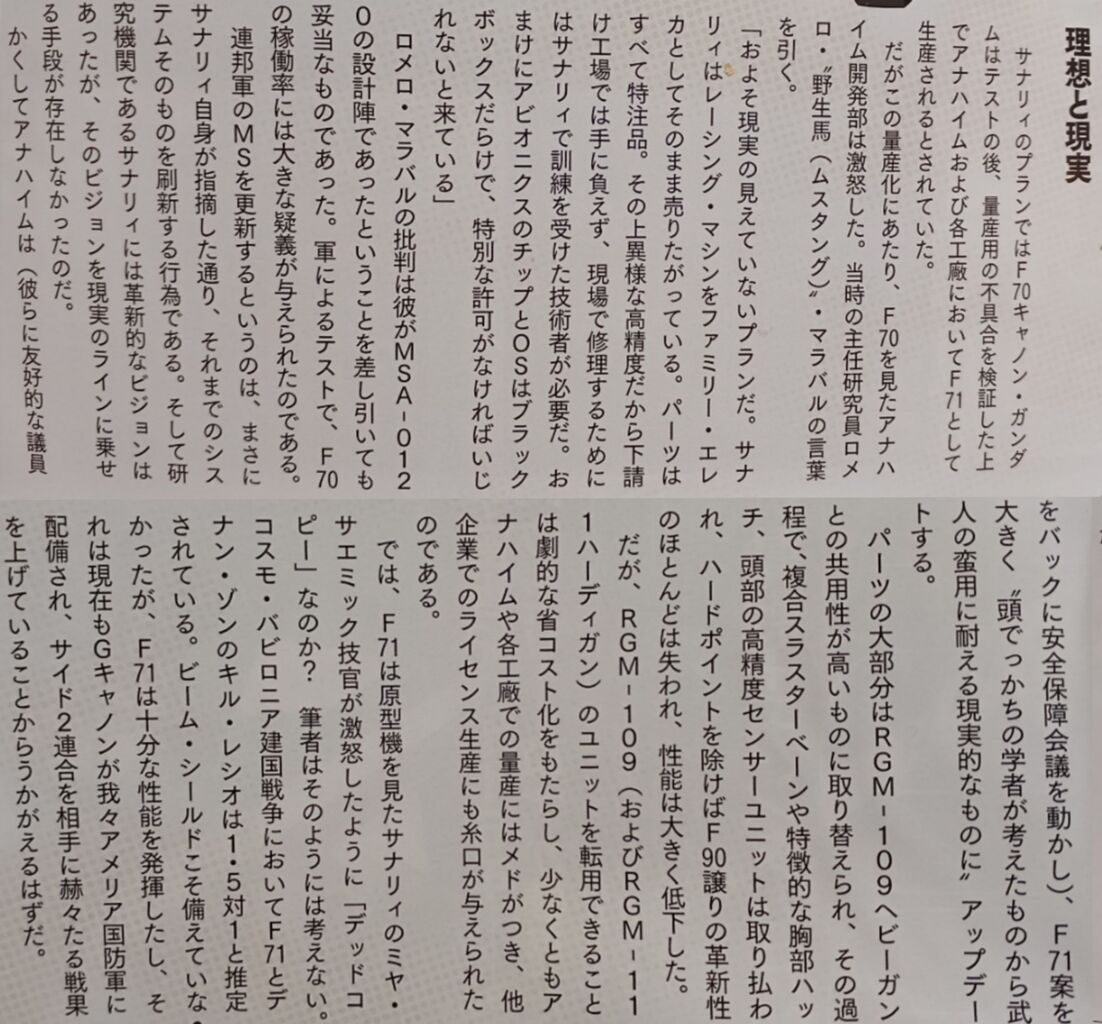 理想と現実
サナリィのプランではF70キャノン・ガンダ
ムはテストの後、量産用の不具合を検証した上
でアナハイムおよび各工廠においてF71として
生産されるとされていた。
だがこの量産化にあたり、F70を見たアナハ
イム開発部は激怒した。当時の主任研究員ロメ
ロ・〝野生馬（ムスタング）〟・マラバルの言葉
を引く。
「およそ現実の見えていないプランだ。サナ
リィはレーシング・マシンをファミリー・エレ
カとしてそのまま売りたがっている。パーツは
すべて特注品。その上異様な高精度だから下請
け工場では手に負えず、現場で修理するために
はサナリィで訓練を受けた技術者が必要だ。お
まけにアビオニクスのチップとOSはブラック
ボックスだらけで、特別な許可がなければいじ
れないと来ている」
ロメロ・マラバルの批判は彼がMSA-012
0の設計陣であったということを差し引いても
妥当なものであった。軍によるテストで、F70
の稼働率には大きな疑義が与えられたのである。
連邦軍のMSを更新するというのは、まさに
サナリィ自身が指摘した通り、それまでのシス
テムそのものを刷新する行為である。そして研
究機関であるサナリィには革新的なビジョンは
あったが、そのビジョンを現実のラインに乗せ
る手段が存在しなかったのだ。
かくしてアナハイムは（彼らに友好的な議員
をバックに安全保障会議を動かし）、F71案を
大きく〝頭でっかちの学者が考えたものから武
人の蛮用に耐える現実的なものに〟アップデー
トする。
パーツの大部分はRGM-109ヘビーガン
との共用性が高いものに取り替えられ、その過
程で、複合スラスターベーンや特徴的な胸部ハッ
チ、頭部の高精度センサーユニットは取り払わ
れ、ハードポイントを除けばF90譲りの革新性
のほとんどは失われ、性能は大きく低下した。
だが、RGM-109（およびRGM-11
1ハーディガン）のユニットを転用できること
は劇的な省コスト化をもたらし、少なくともア
ナハイムや各工廠での量産にはメドがつき、他
企業でのライセンス生産にも糸口が与えられた
のである。
では、F71は原型機を見たサナリィのミヤ・
サエミック技官が激怒したように「デッドコ
ピー」なのか？　筆者はそのようには考えない。
コスモ・バビロニア建国戦争においてF71とデ
ナン・ゾンのキル・レシオは1・5対1と推定
されている。ビーム・シールドこそ備えていな
かったが、F71は十分な性能を発揮したし、そ
れは現在もGキャノンが我々アメリア国防軍に
配備され、サイド2連合を相手に赫々たる戦果
を上げていることからうかがえるはずだ。